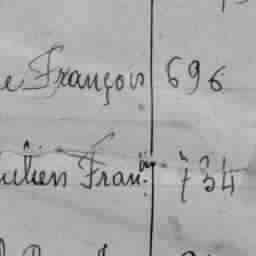 e François 696
ulien Fran: 734